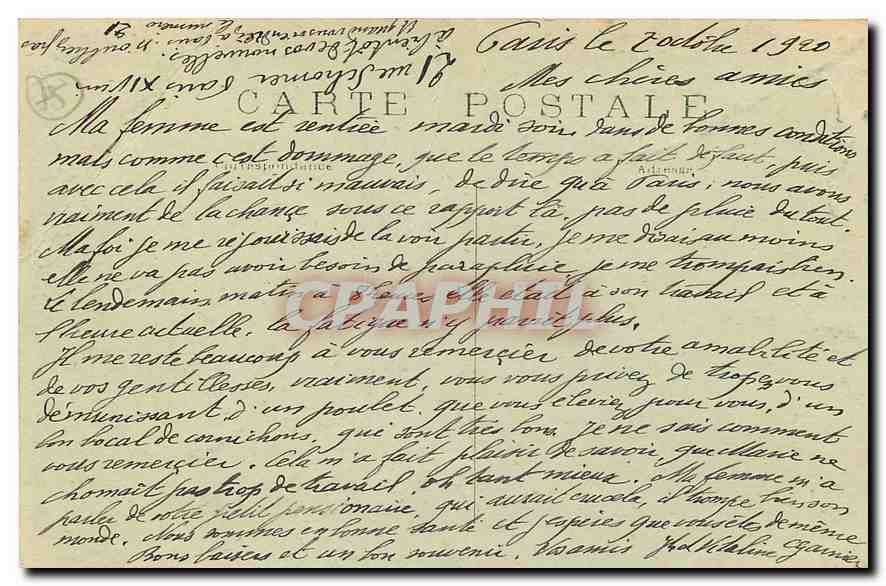 Paris le 7 octobre 1920
Mes chères amies
CARTE POSTALE
Ma femme est rentrée mardi soir, dans de bonnes conditions
mais comme c'est dommage, que le temps a fait défaut, puis
Correspondance
Adresse
avec cela il faisait si mauvais, de dire qu'à Paris, nous avons
vraiment de la chance sous ce rapport là. pas de pluie du tout.
Ma foi je me réjouissais de la voir partir, je me disais au moins
elle ne va pas avoir besoin de parapluie, je me trompais bien.
Le lendemain matin à heures elle était à son travail et à
l'heure actuelle. la fatigue n'y parait plus.
CPAPHIL
Il me reste beaucoup à vous remercier de votre amabilité et
de vos gentillesses, vraiment, vous vous privez de trop, vous
démunissant d'un poulet que vous éleviez pour vous, d'un
bon bocal de cornichons, qui sont très bons. Je ne sais comment
vous remercier. Cela m'a fait plaisir de savoir, que Marie ne
chomait pas trop de travail. oh tant mieux. Ma femme m'a
parler de votre petit pensionnaire, qui aurait cru cela, il trompe bien son
monde. Nous sommes en bonne santé et j'espères que vous êtes de même
Bons baisers et un bon souvenir. Vos amis
à bientôt de vos nouvelles.
Et quand vous viendrez à Paris. n'oubliez pas
le numéro 21
21 rue Schomer Paris XIV